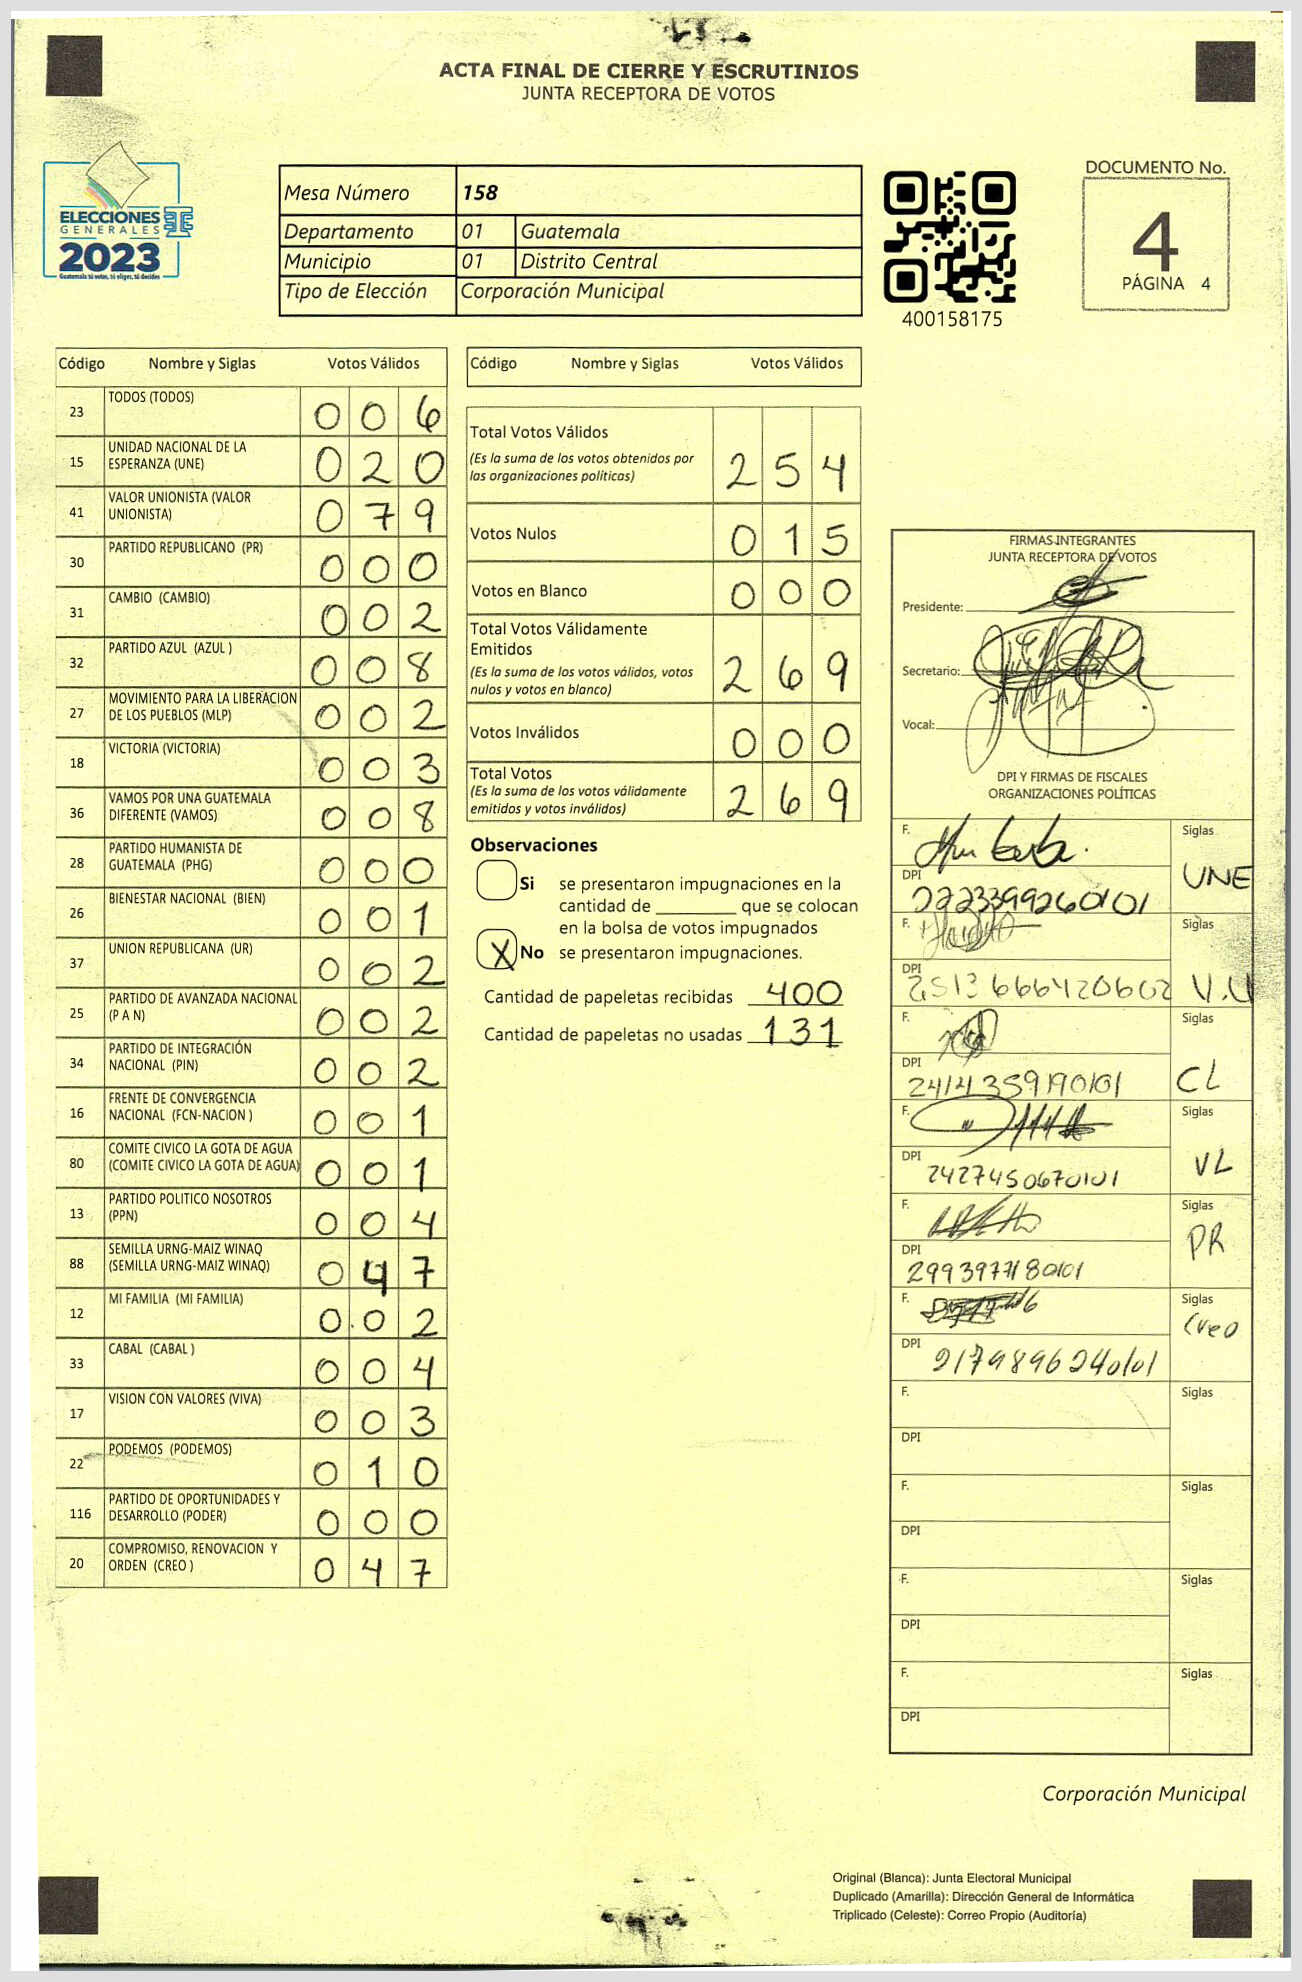 ACTA FINAL DE CIERRE Y ESCRUTINIOS
JUNTA RECEPTORA DE VOTOS
ELECCIONES
GENERALES
2023
Guatemala tú votas, tú eliges, tú decides
Mesa Número 158
Departamento 01 Guatemala
Municipio 01 Distrito Central
Tipo de Elección Corporación Municipal
400158175
DOCUMENTO No.
4
PÁGINA 4
Código Nombre y Siglas Votos Válidos
23 TODOS (TODOS) 0 0 6
15 UNIDAD NACIONAL DE LA
ESPERANZA (UNE) 0 2 0
41 VALOR UNIONISTA (VALOR
UNIONISTA) 0 7 9
30 PARTIDO REPUBLICANO (PR) 0 0 0
31 CAMBIO (CAMBIO) 0 0 2
32 PARTIDO AZUL (AZUL ) 0 0 8
27 MOVIMIENTO PARA LA LIBERACION
DE LOS PUEBLOS (MLP) 0 0 2
18 VICTORIA (VICTORIA) 0 0 3
36 VAMOS POR UNA GUATEMALA
DIFERENTE (VAMOS) 0 0 8
28 PARTIDO HUMANISTA DE
GUATEMALA (PHG) 0 0 0
26 BIENESTAR NACIONAL (BIEN) 0 0 1
37 UNION REPUBLICANA (UR) 0 0 2
25 PARTIDO DE AVANZADA NACIONAL
(P A N) 0 0 2
34 PARTIDO DE INTEGRACIÓN
NACIONAL (PIN) 0 0 2
16 FRENTE DE CONVERGENCIA
NACIONAL (FCN-NACION ) 0 0 1
80 COMITE CIVICO LA GOTA DE AGUA
(COMITE CIVICO LA GOTA DE AGUA) 0 0 1
13 PARTIDO POLITICO NOSOTROS
(PPN) 0 0 4
88 SEMILLA URNG-MAIZ WINAQ
(SEMILLA URNG-MAIZ WINAQ) 0 4 7
12 MI FAMILIA (MI FAMILIA) 0 0 2
33 CABAL (CABAL ) 0 0 4
17 VISION CON VALORES (VIVA) 0 0 3
22 PODEMOS (PODEMOS) 0 1 0
116 PARTIDO DE OPORTUNIDADES Y
DESARROLLO (PODER) 0 0 0
20 COMPROMISO, RENOVACION Y
ORDEN (CREO ) 0 4 7
Código Nombre y Siglas Votos Válidos
Total Votos Válidos
(Es la suma de los votos obtenidos por
las organizaciones políticas) 2 5 4
Votos Nulos 0 1 5
Votos en Blanco 0 0 0
Total Votos Válidamente
Emitidos
(Es la suma de los votos válidos, votos
nulos y votos en blanco) 2 6 9
Votos Inválidos 0 0 0
Total Votos
(Es la suma de los votos válidamente
emitidos y votos inválidos) 2 6 9
Observaciones
Si se presentaron impugnaciones en la
cantidad de ________ que se colocan
en la bolsa de votos impugnados
X No se presentaron impugnaciones.
Cantidad de papeletas recibidas 400
Cantidad de papeletas no usadas 131
FIRMAS INTEGRANTES
JUNTA RECEPTORA DE VOTOS
Presidente:
Secretario:
Vocal:
DPI Y FIRMAS DE FISCALES
ORGANIZACIONES POLÍTICAS
F. Siglas
UNE
DPI 2223399260101
F. Siglas
DPI V.U
F. Siglas
DPI 2414359190101 CL
F. Siglas
DPI 2427450670101 VL
F. Siglas
PR
DPI 2993977180101
F. Siglas
Creo
DPI 2179896240101
F. Siglas
DPI
F. Siglas
DPI
F. Siglas
DPI
F. Siglas
DPI
Corporación Municipal
Original (Blanca): Junta Electoral Municipal
Duplicado (Amarilla): Dirección General de Informática
Triplicado (Celeste): Correo Propio (Auditoría)